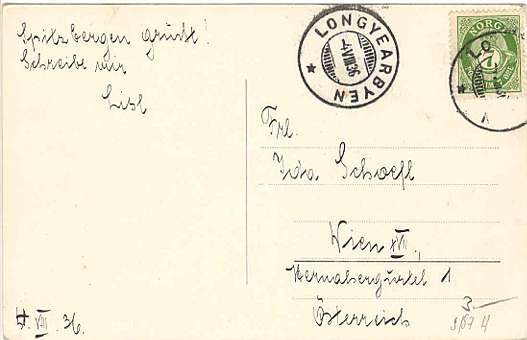 Spitzbergen grüsst!
Schreibe mir
Lisl
4. VIII. 36.
LONGYEARBYEN
4 VIII 36
NORGE
7
LO
Frl.
Ida Schoefl
Wien XVII.,
Hernalsergürtel 1
Österreich
3.—